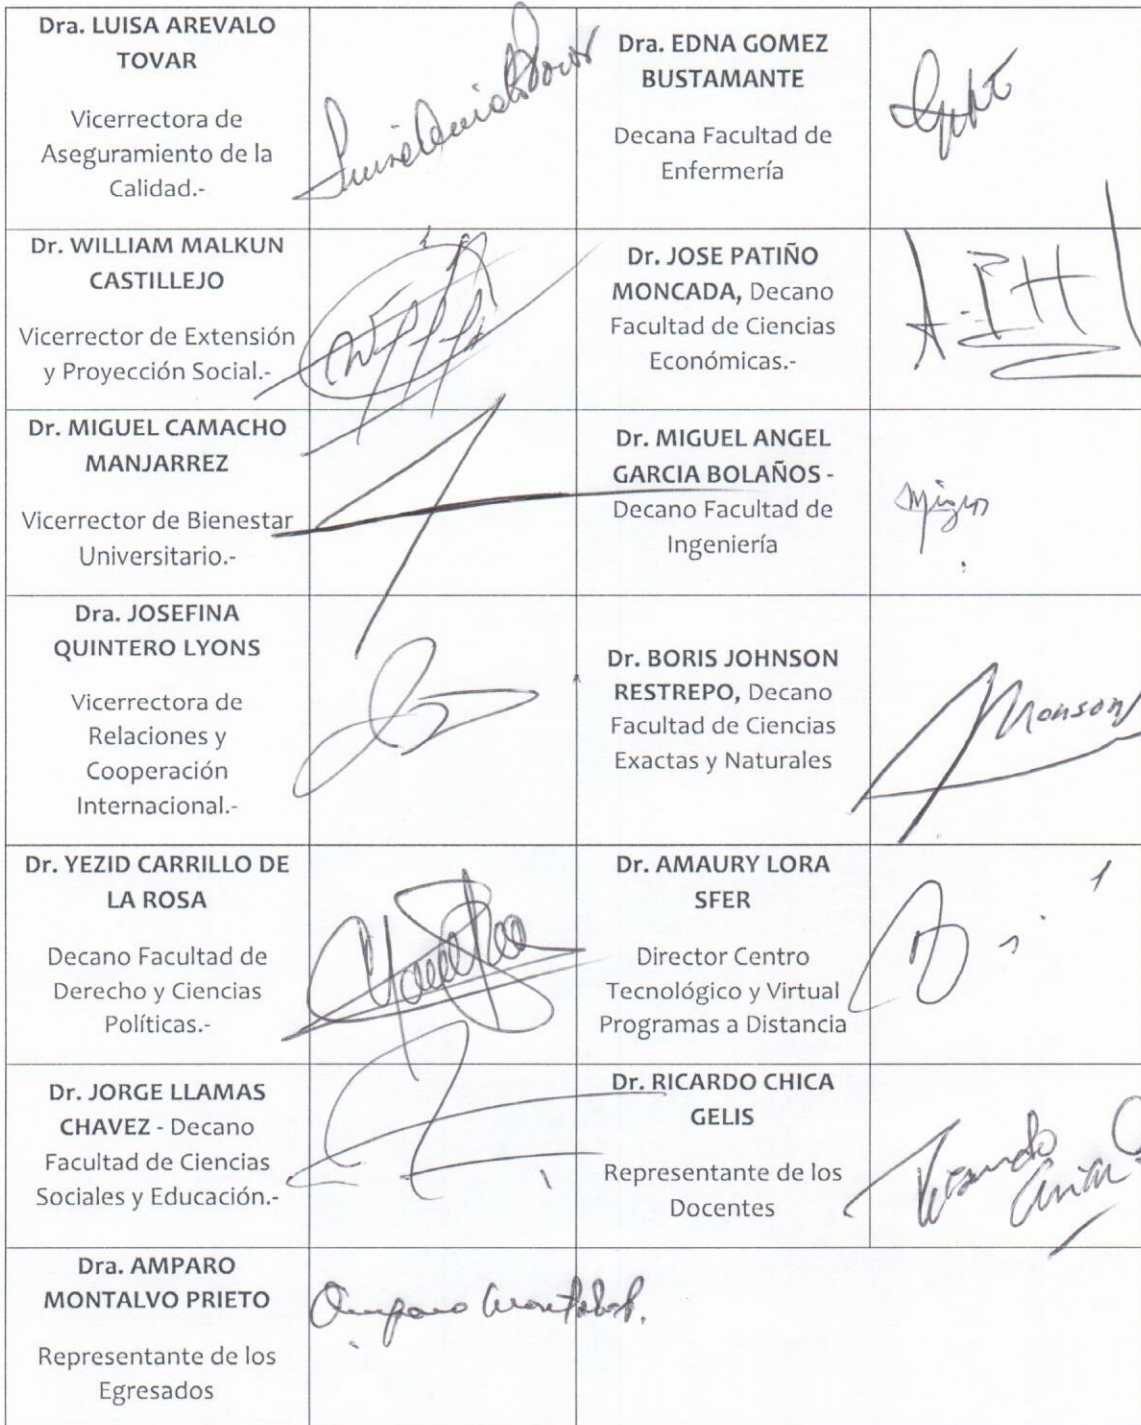 Dra. LUISA AREVALO
TOVAR
Vicerrectora de
Aseguramiento de la
Calidad.-
Dra. EDNA GOMEZ
BUSTAMANTE
Decana Facultad de
Enfermería
Dr. WILLIAM MALKUN
CASTILLEJO
Vicerrector de Extensión
y Proyección Social.-
Dr. JOSE PATIÑO
MONCADA, Decano
Facultad de Ciencias
Económicas.-
Dr. MIGUEL CAMACHO
MANJARREZ
Vicerrector de Bienestar
Universitario.-
Dr. MIGUEL ANGEL
GARCIA BOLAÑOS -
Decano Facultad de
Ingeniería
Dra. JOSEFINA
QUINTERO LYONS
Vicerrectora de
Relaciones y
Cooperación
Internacional.-
Dr. BORIS JOHNSON
RESTREPO, Decano
Facultad de Ciencias
Exactas y Naturales
Dr. YEZID CARRILLO DE
LA ROSA
Decano Facultad de
Derecho y Ciencias
Políticas.-
Dr. AMAURY LORA
SFER
Director Centro
Tecnológico y Virtual
Programas a Distancia
Dr. JORGE LLAMAS
CHAVEZ - Decano
Facultad de Ciencias
Sociales y Educación.-
Dr. RICARDO CHICA
GELIS
Representante de los
Docentes
Dra. AMPARO
MONTALVO PRIETO
Representante de los
Egresados